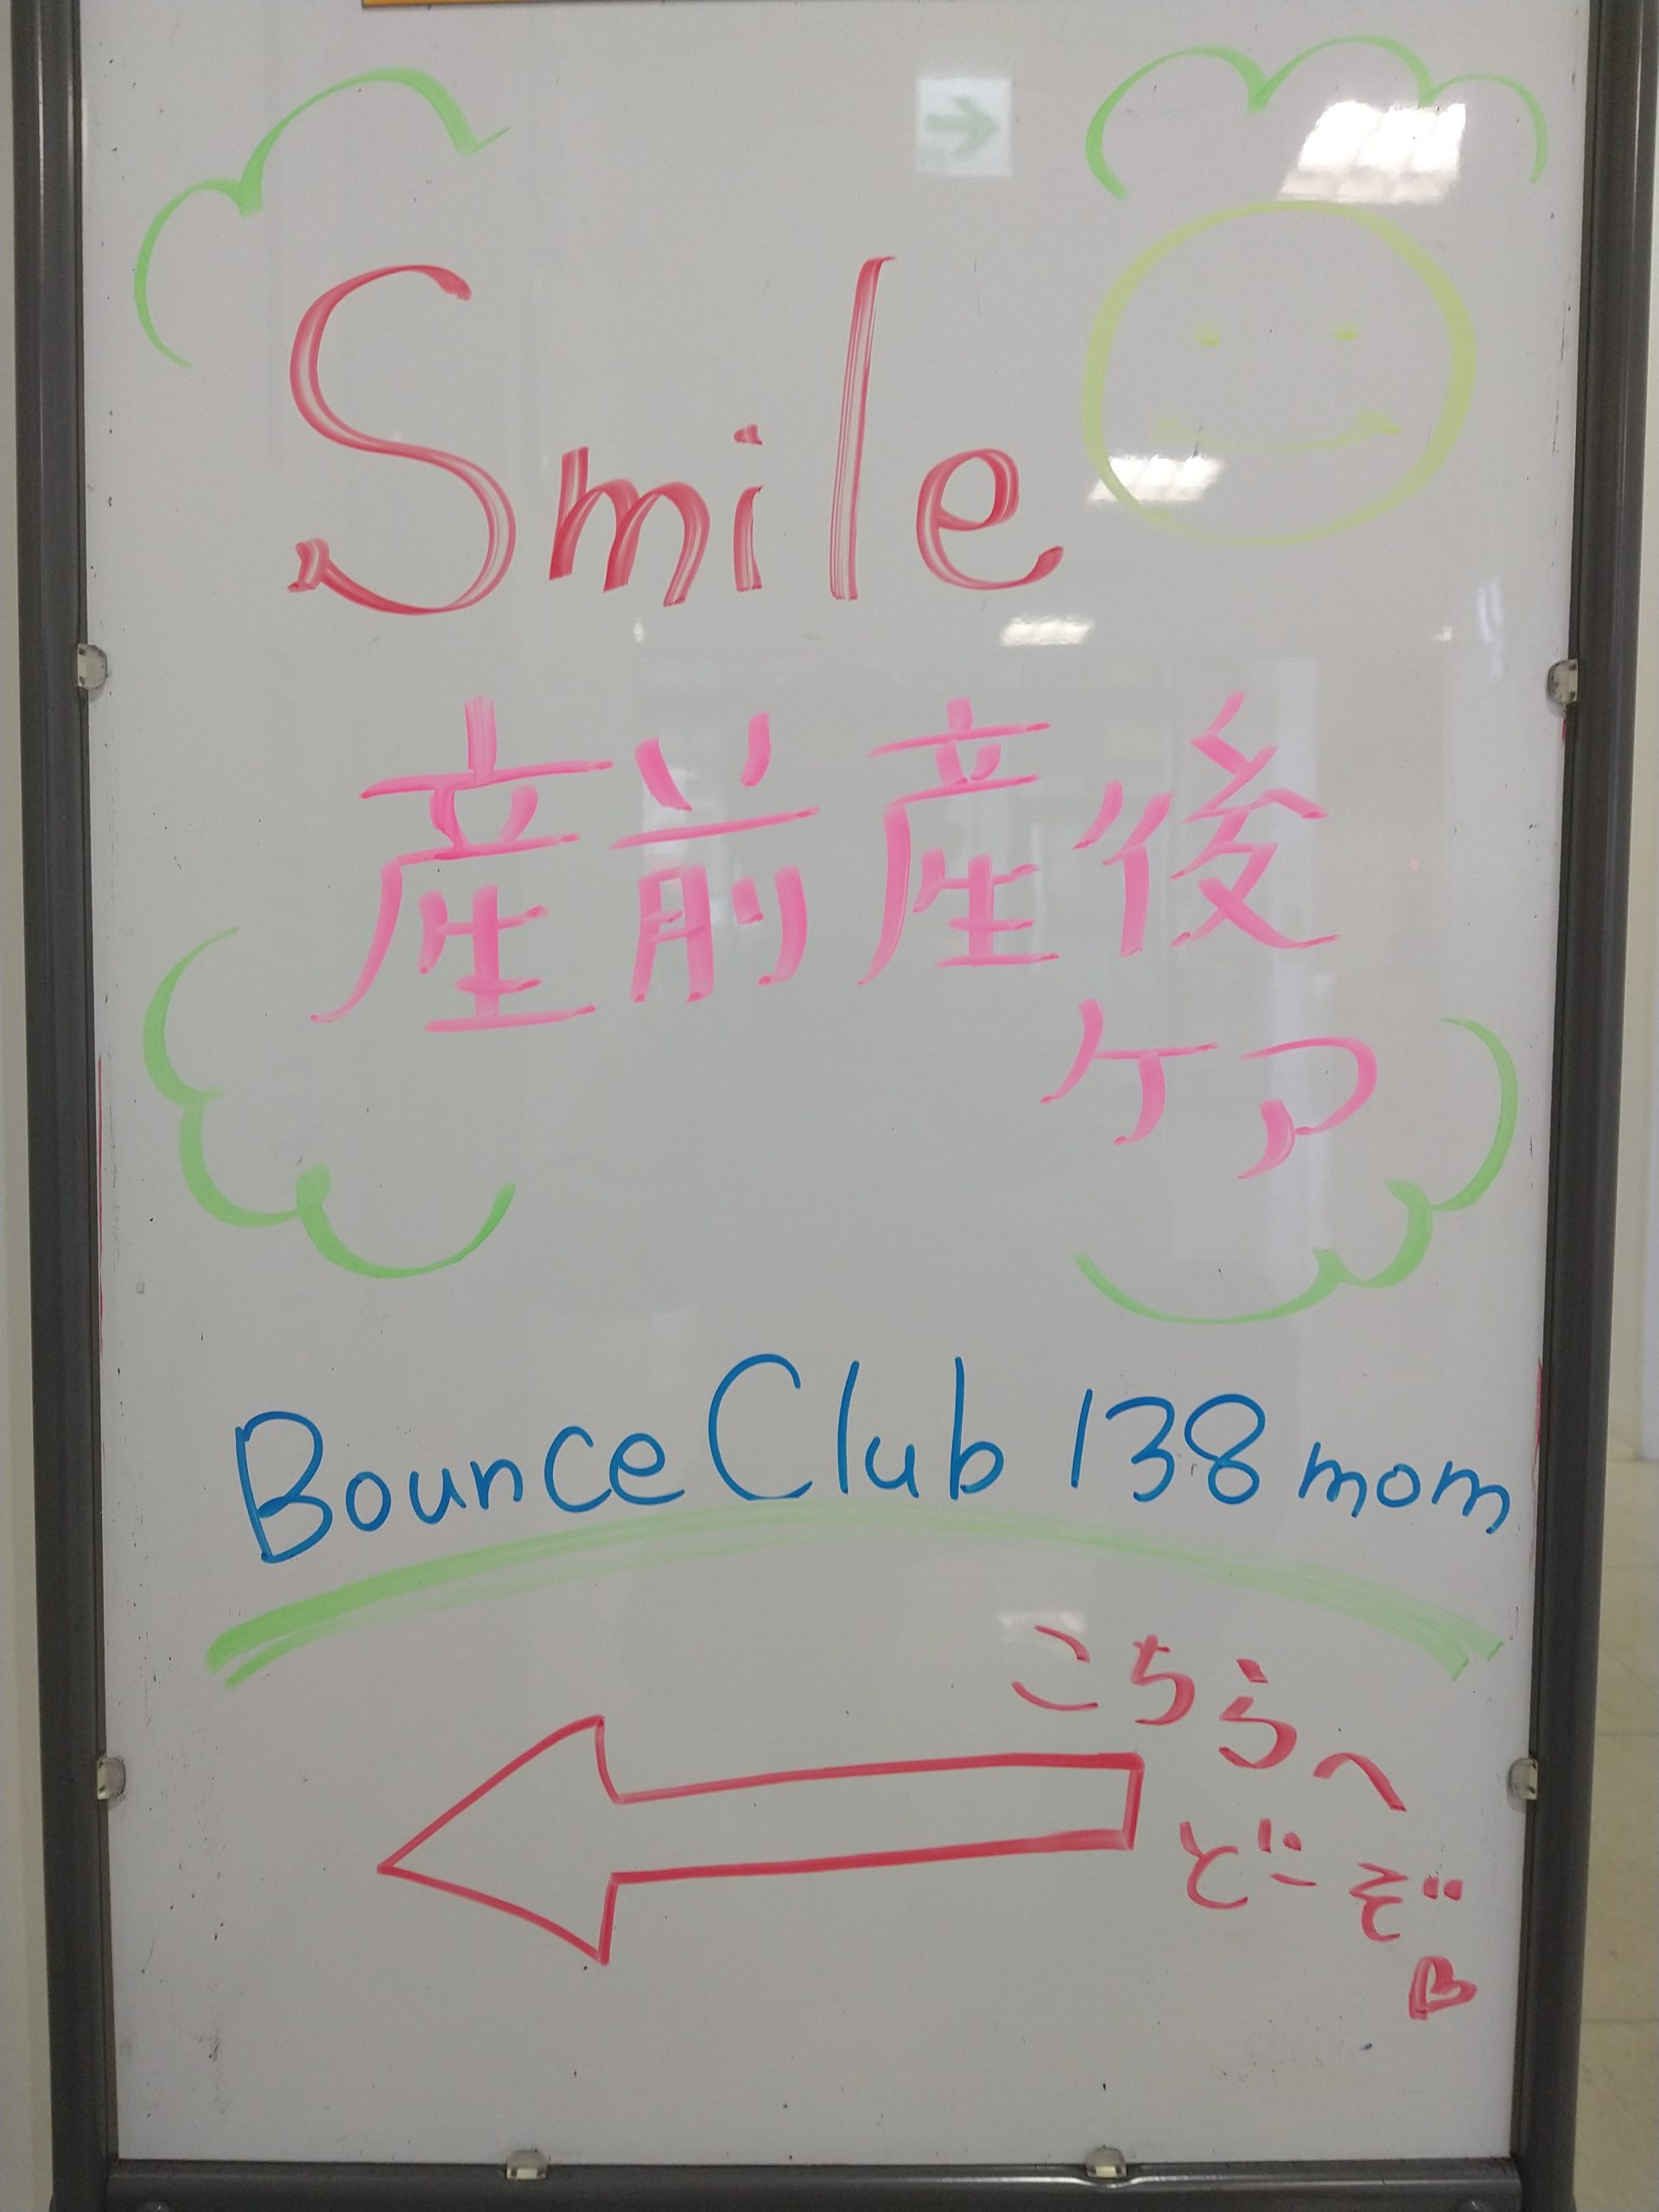 Smile
産前産後
ケア
Bounce Club 138 mom
こちらへ
どーぞ